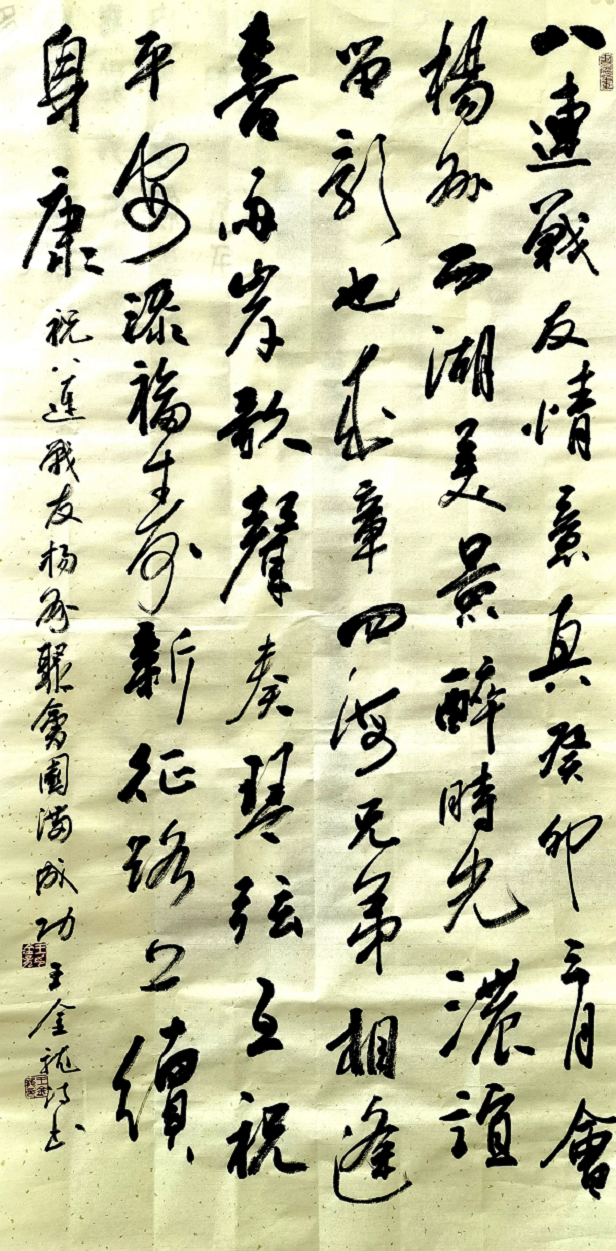 八連戰友情意真癸卯三月會
楊州西湖美景醉時光濃誼
留影也成章四海兄弟相逢
喜两岸歌聲奏琴弦互祝
平安添福生寿新征路上續
身康
祝八連戰友杨州聚會圓满成功
王金龍诗书